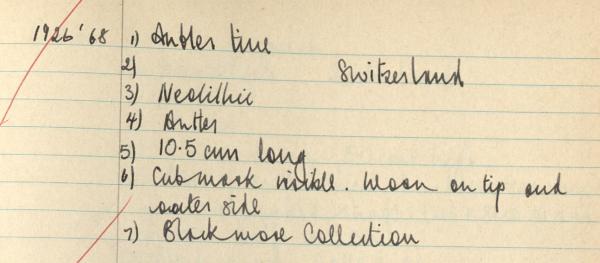 1926'68 1) Antler tine
2) Switzerland
3) Neolithic
4) Antler
5) 10.5 cm long
6) Cutmark visible. Worn on tip and
outer side
7) Blackmore Collection